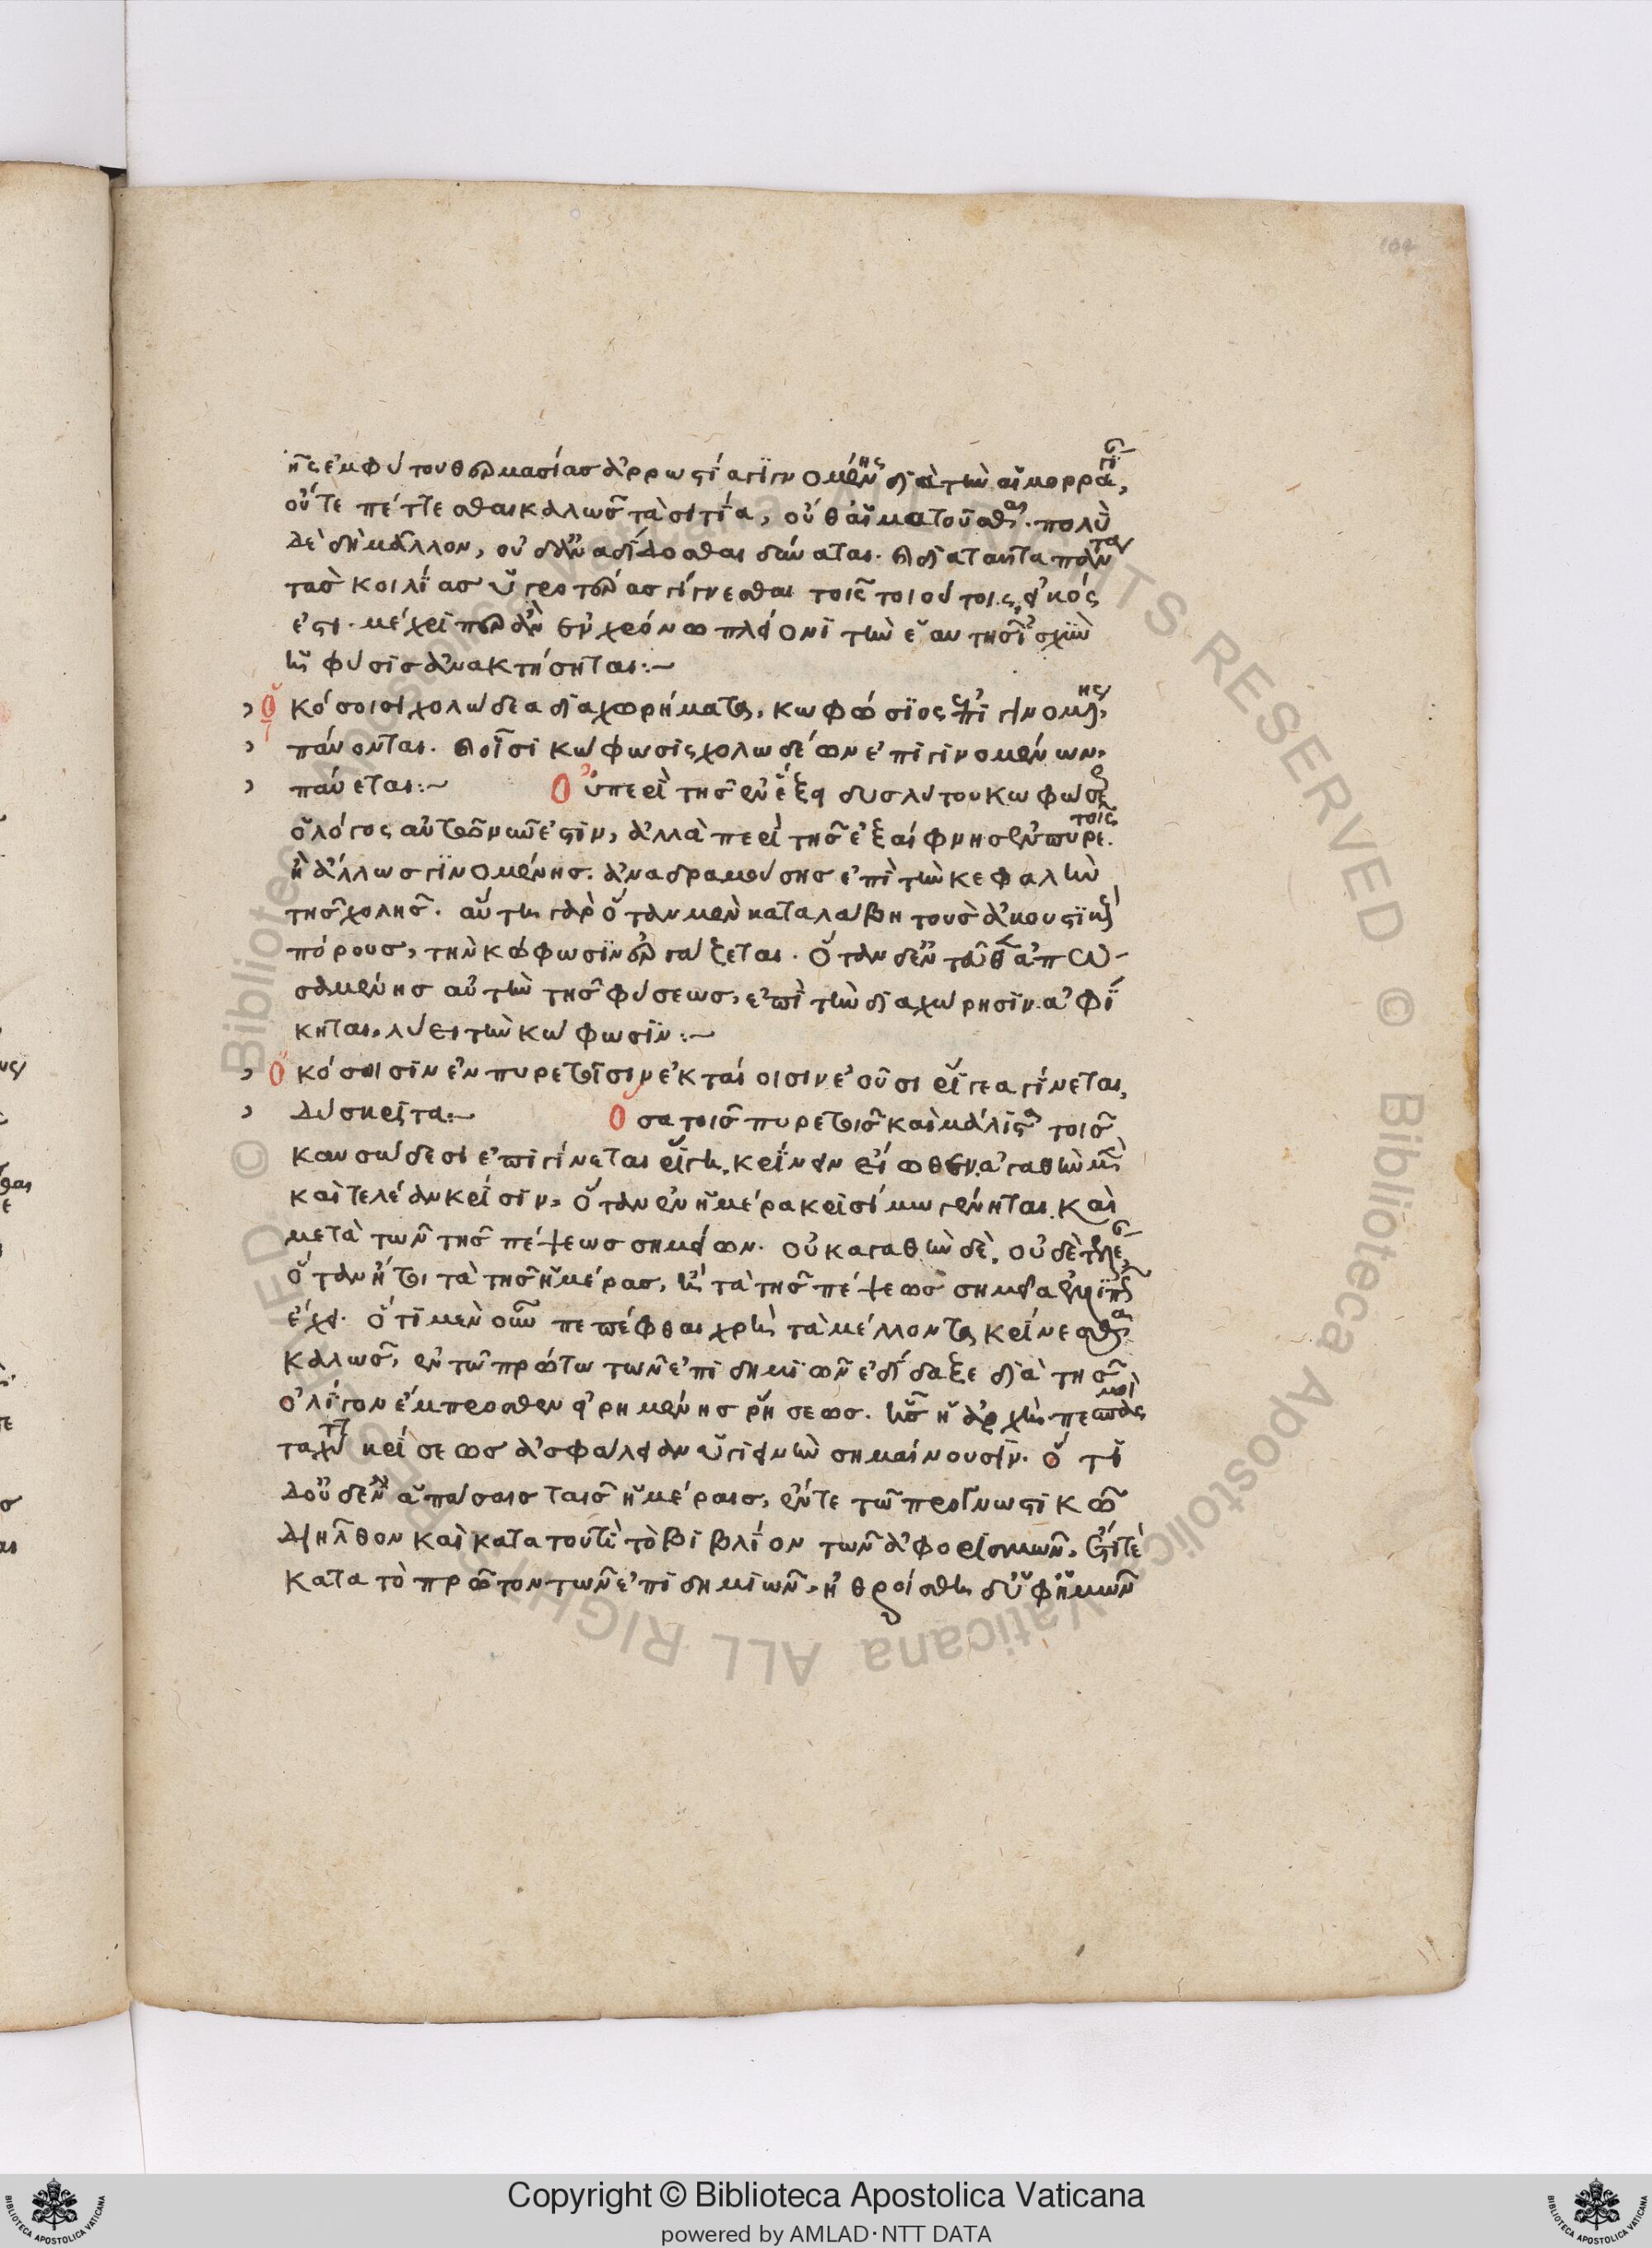 της ἐμφύτου θερμασίας ἀρρωστία γίγνομένης διὰ τὴν αἱμορραγί,
οὔτε πέττεσθαι καλῶς τὰ σιτία, οὔθ αἱματοῦσθαι. πολὺ
δὲ δὴ μᾶλλον, οὐδ ἀναδίδοσθαι δύναται. διὰ ταῦτα πάντα
τὰς κοιλίας ὑγροτέρας γίγνεσθαι τοῖς τοιούτοις, εἰκός
ἐστι. μέχρι περ ἂν ἐν χρόνω πλείονι τὴν ἑαυτῆς ἰσχὺν
ἡ φύσις ἀνακτήσηται:~
Ὁκόσοισι χολώδεα διαχωρήματα, κωφώσιος ἐπιγινομένης,
παύονται. οἷσι κώφωσις χολωδέων ἐπιγινομένων,
παύεται:~ Οὐ περὶ τῆς ἐν ἕξει δυσλύτου κωφώσε
ὁ λόγος αὐτῶ νῦν ἐστιν, ἀλλὰ περὶ τῆς ἐξαίφνης ἐν τοῖς πυρε.
ἢ ἄλλως γινομένης. ἀναδραμούσης ἐπὶ τὴν κεφαλὴν
τῆς χολῆς. αὕτη γὰρ ὅταν μὲν καταλάβη τοὺς ἀκουστικοὺς
πόρους, τὴν κώφωσιν ἐργάζεται. ὅταν δ
σαμένης αὐτὴν τῆς φύσεως, ἐπὶ τὴν διαχώρησιν ἀφί
κηται, λύει τὴν κώφωσιν:~
Ὁκόσοισιν ἐν πυρετοῖσιν ἑκταίοισιν ἐοῦσι ῥίγεα γίνεται,
δύσκριτα:~ Ὅσα τοῖς πυρετοῖς καὶ μάλιστα τοῖς
καυσώδεσι ἐπιγίνεται ῥίγη, κρίνειν εἴωθεν. ἀγαθὴν μὲν
καὶ τελείαν κρίσιν, ὅταν ἐν ἡμέρα κρισίμω γένηται. καὶ
μετὰ τῶν τῆς πέψεως σημείων. οὐκ ἀγαθὴν δὲ, οὐδὲ τελε,
ὅταν ἤτοι τὰ τῆς ἡμέρας, ἢ τὰ τῆς πέψεως σημεῖα ἐλλιπῶς
ἔχει. ὅτι μὲν οὖν πεπέφθαι χρὴ τὰ μέλλοντα κρίνεσθαι
καλῶς, ἐν τῶ πρώτω τῶν ἐπιδημιῶν ἐδίδαξε διὰ τῆς
ὀλίγον ἔμπροσθεν εἰρημένης ῥήσεως. ἧς ἡ ἀρχὴ πεπασμοὶ
ταχυτῆτα κρίσεως ἀσφάλειαν ὑγιεινὴν σημαίνουσιν. ὅτι
δ οὐδ ἐν ἁπάσαις ταῖς ἡμέραις, ἔν τε τῶ προγνωστικῶ
διῆλθον καὶ κατὰ τουτὶ τὸ βιβλίον τῶν ἀφορισμῶν,
κατὰ τὸ πρῶτον τῶν ἐπιδημιῶν, ἠθροίσθη δ ὑφ ἡμῶν